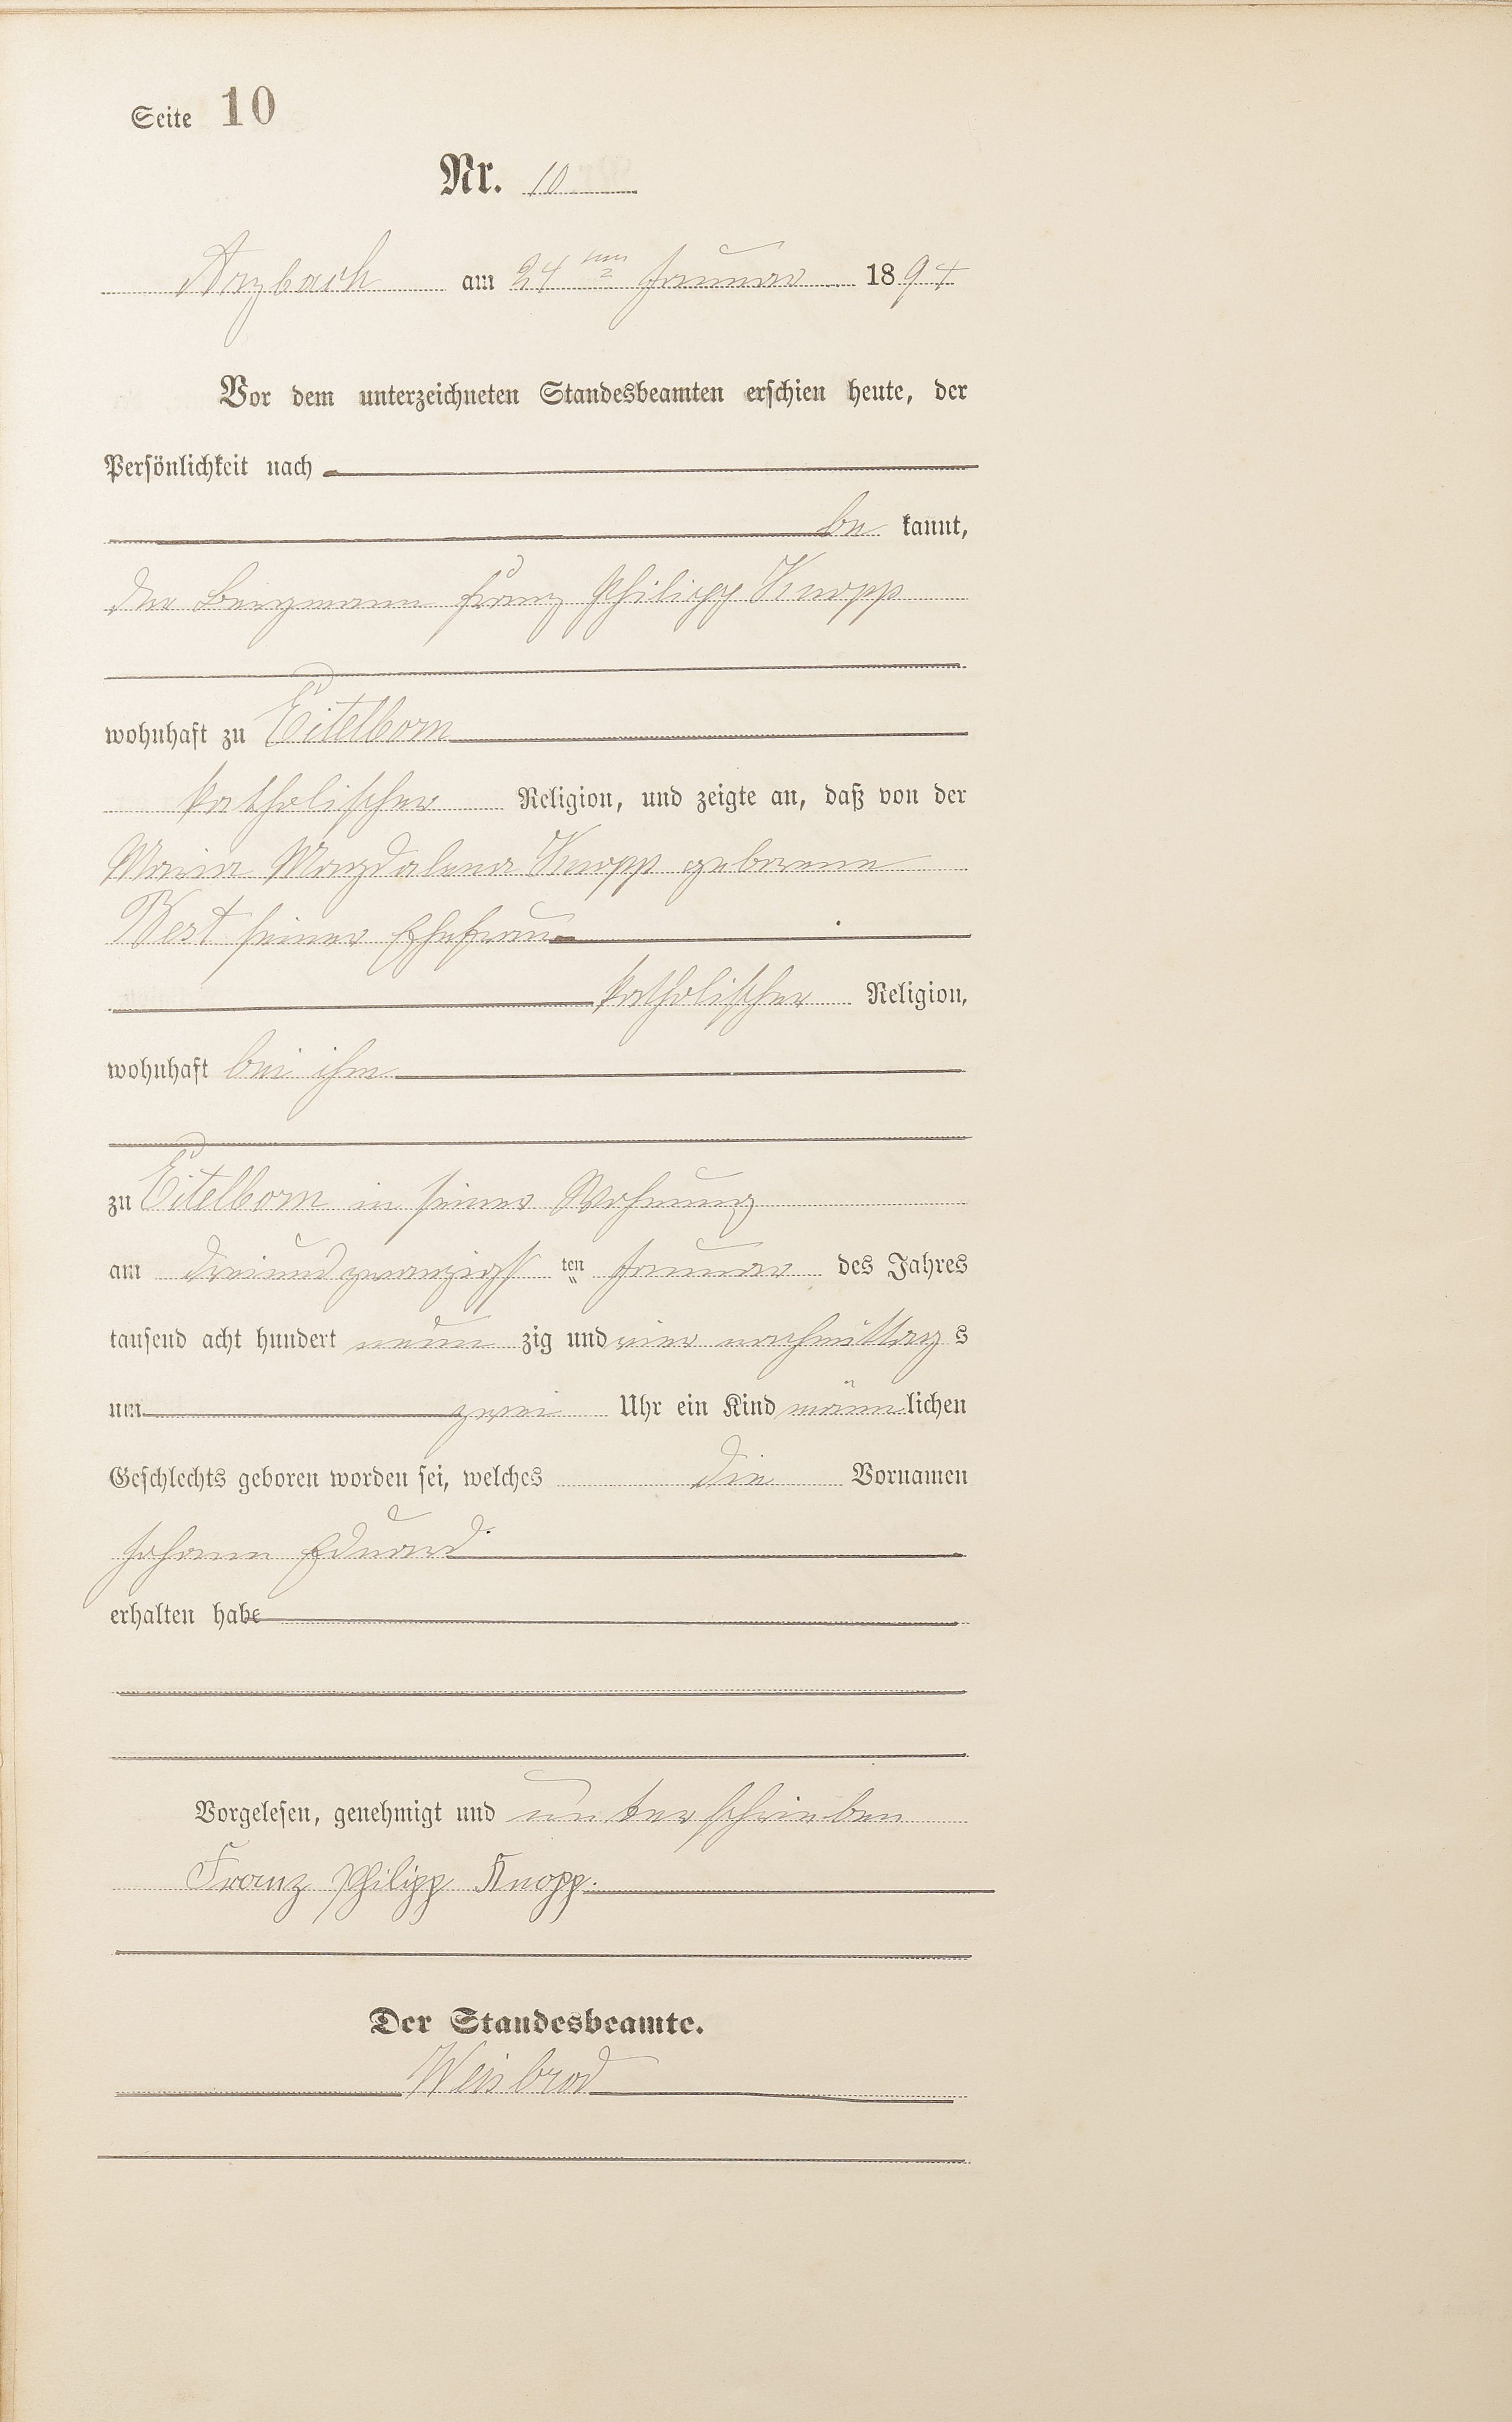 Seite 10
Nr. 10
Arzbach am 24ten Januar 1894
Vor dem unterzeichneten Standesbeamten erschien heute, der
Persönlichkeit nach
be kannt,
der Bergmann Franz Philipp Knopp
wohnhaft zu Eitelborn
katholischer Religion, und zeigte an, daß von der
Maria Magdalena Knopp geborene
West seiner Ehefrau
katholischer Religion,
wohnhaft bei ihm
zu Eitelborn in seiner Wohnung
am dreiundzwanzigst ten Januar des Jahres
tausend acht hundert neun zig und vier nachmittag s
um zwei Uhr ein Kind männ lichen
Geschlechts geboren worden sei, welches die Vornamen
Johann Eduard
erhalten habe
Vorgelesen, genehmigt und unterschrieben
Franz Philipp Knopp.
Der Standesbeamte.
Weisbrod